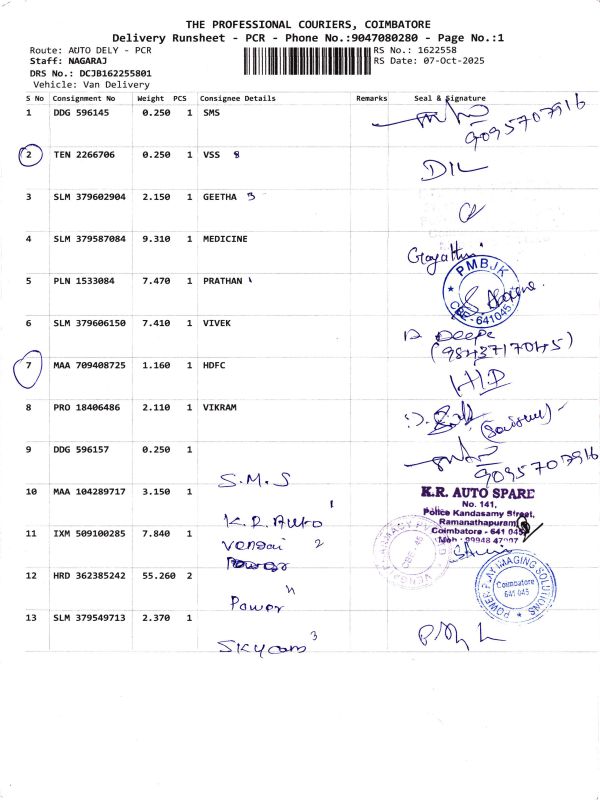 THE PROFESSIONAL COURIERS, COIMBATORE
Delivery Runsheet - PCR - Phone No.:9047080280 - Page No.:1
Route: AUTO DELY - PCR RS No.: 1622558
Staff: NAGARAJ RS Date: 07-Oct-2025
DRS No.: DCJB162255801
Vehicle: Van Delivery
S No Consignment No Weight PCS Consignee Details Remarks Seal & Signature
1 DDG 596145 0.250 1 SMS
9095707916
2 TEN 2266706 0.250 1 VSS 8
DIL
3 SLM 379602904 2.150 1 GEETHA 3
4 SLM 379587084 9.310 1 MEDICINE
Gayathri
PMBJK
CBE - 641045
5 PLN 1533084 7.470 1 PRATHAN
6 SLM 379606150 7.410 1 VIVEK
Deepe
(9843717045)
7 MAA 709408725 1.160 1 HDFC
8 PRO 18406486 2.110 1 VIKRAM
9 DDG 596157 0.250 1
S.M.S
9095707916
10 MAA 104289717 3.150 1
K.R. Auto 1
K.R. AUTO SPARE
No. 141,
Police Kandasamy Street,
Ramanathapuram
Coimbatore - 641 045
Mob : 99948 47007
11 IXM 509100285 7.840 1
2
CBE - 45
12 HRD 362385242 55.260 2
Power
POWER PLAY IMAGING SOLUTIONS
Coimbatore
641 045
13 SLM 379549713 2.370 1
Skycom 3